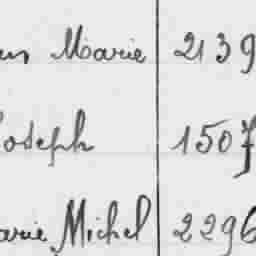 Marie 2139
Joseph 1507
Marie Michel 2296